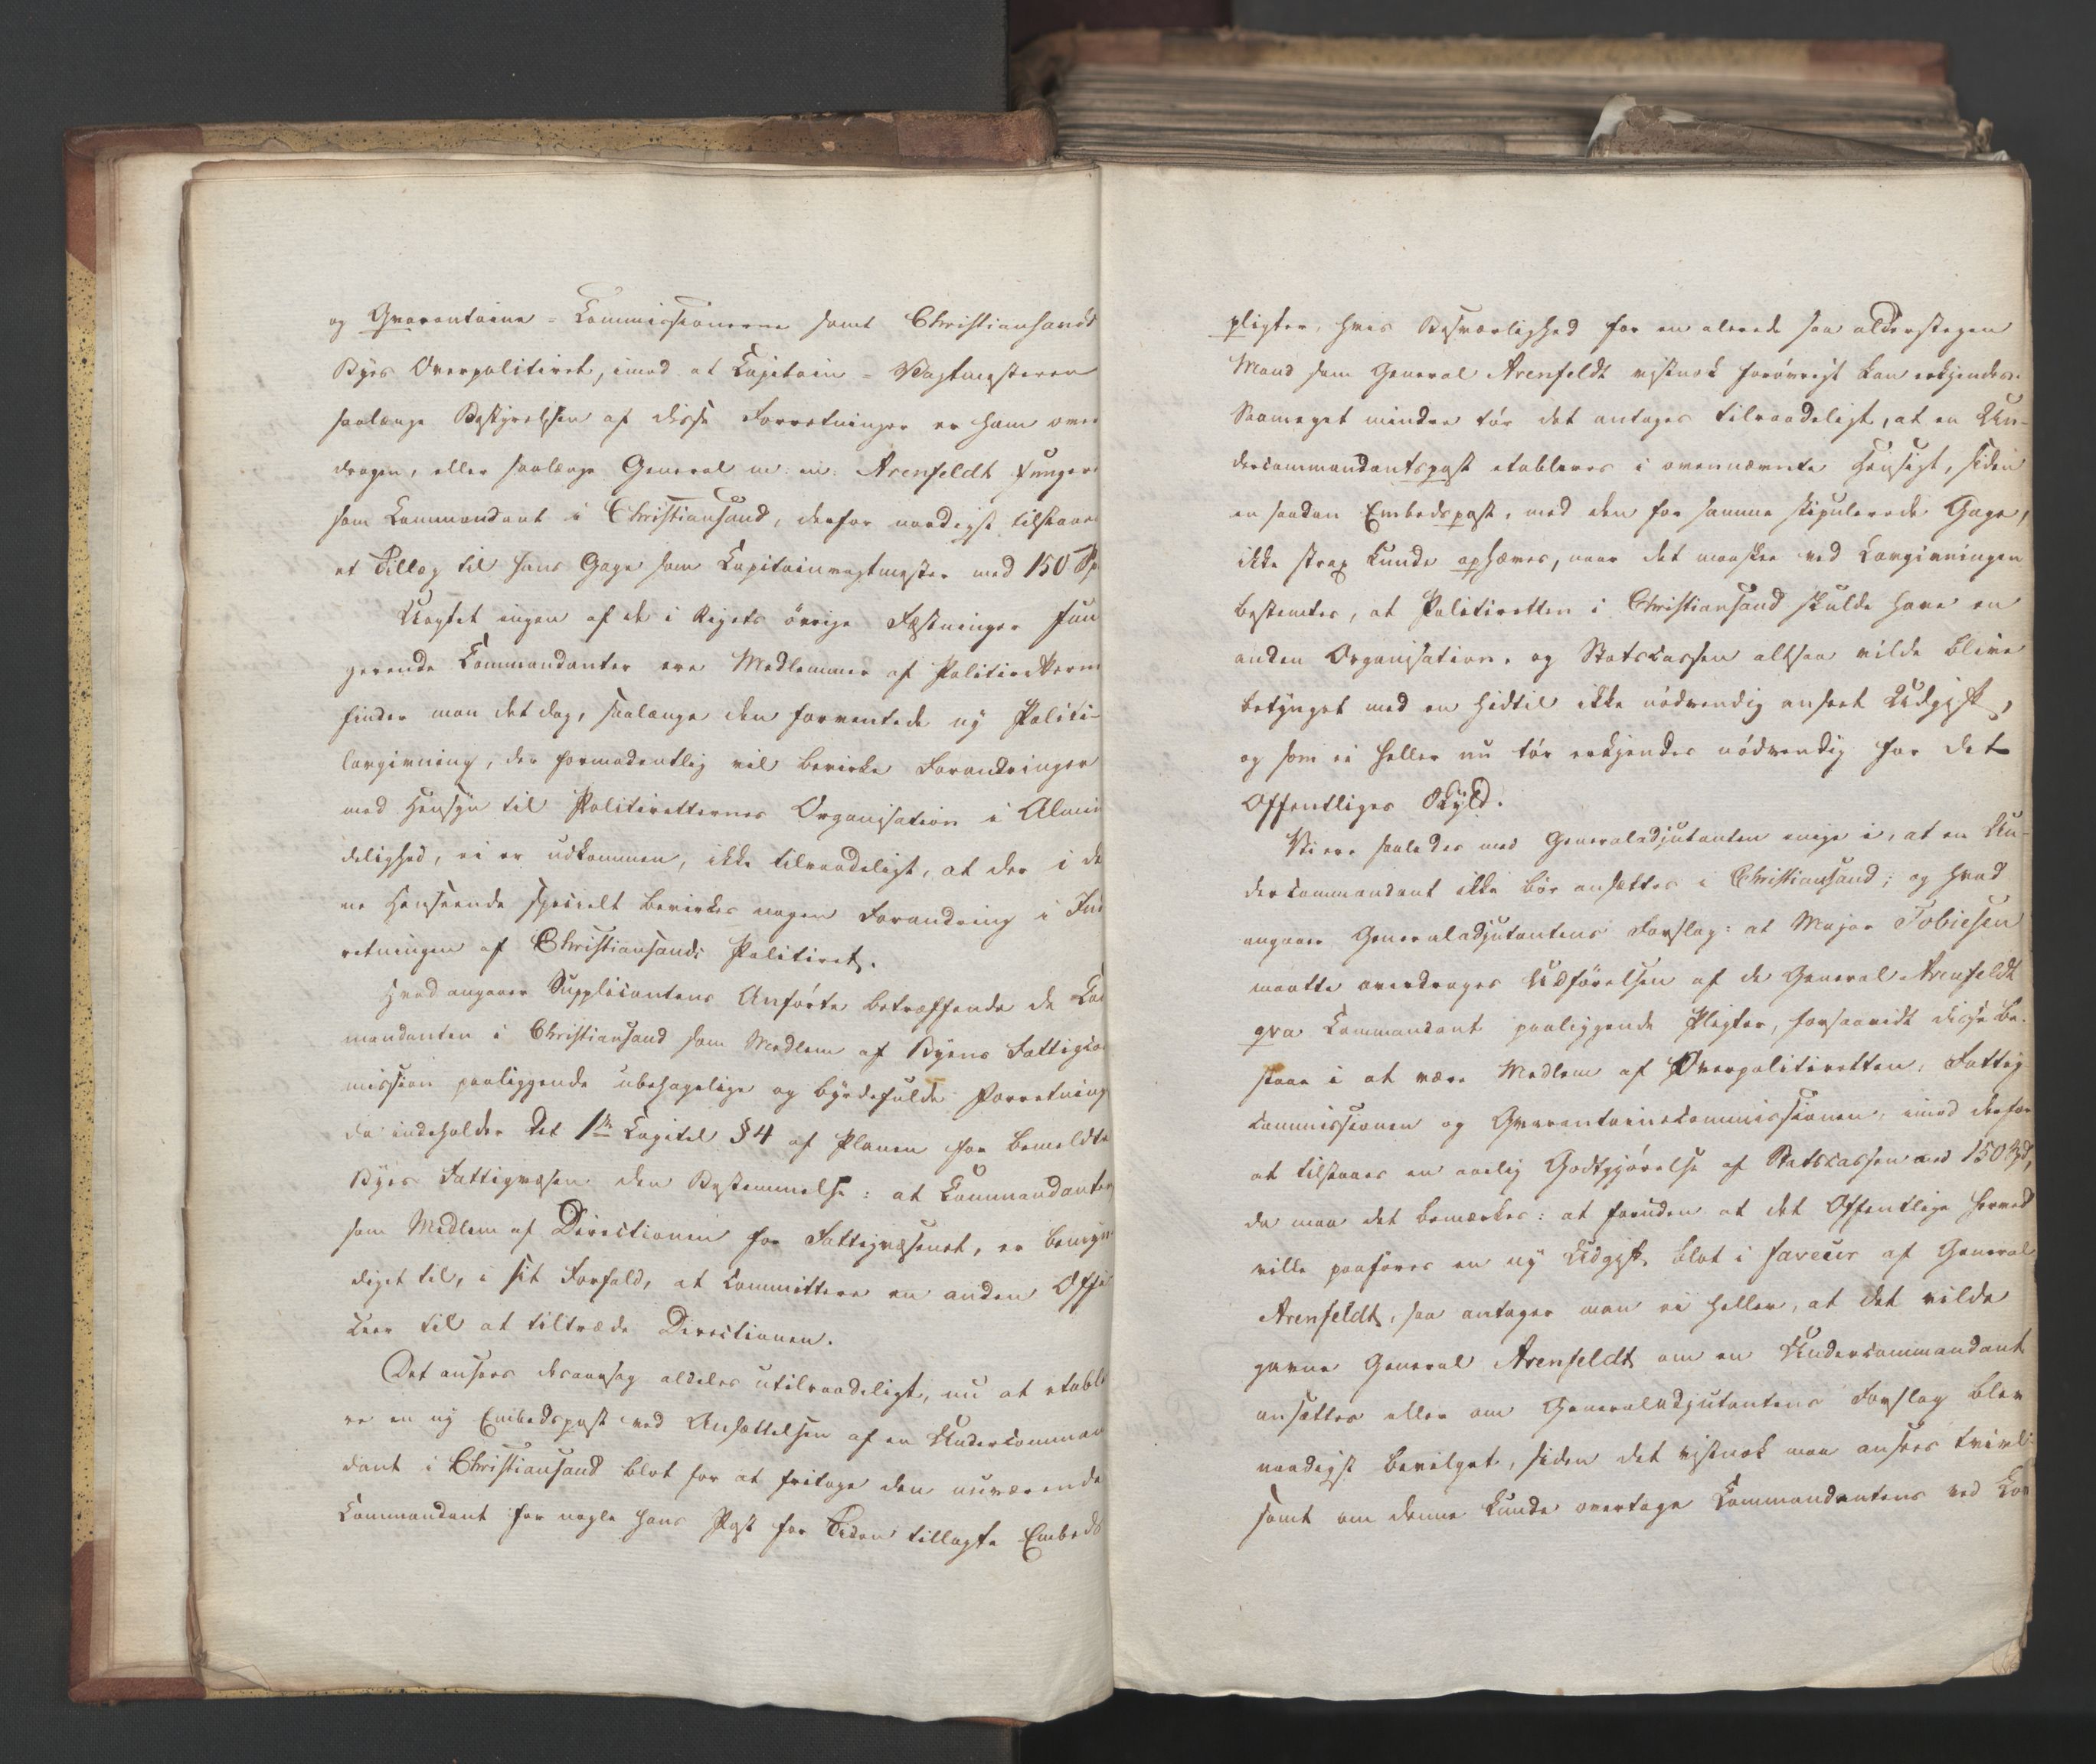 og Qvarantaine-Commissionerne samt Christiansands
Byes Overpolitiret, imod at Capitain-Vagtmesteren
saalænge Bestyrelsen af disse Forretninger er ham over
dragen, eller saalænge General m. m. Arenfeldt funger
som Commandant i Christiansand, derfor naadigst tilstaaes
et Tillæg til hans Gage som Capitainvagtmester med 150 Sp
Uagtet ingen af de i Rigets övrige Fæstninger fun
gerende Commandanter ere Medlemmer af Politieretterne
finder man det dog, saalænge den forventede ny Politi-
lovgivning, der formodentlig vil bevirke Forandringer
med Hensyn til Politieretternes Organisation i Almin
delighed, ei er udkommen, ikke tilraadeligt, at der i den
ne Henseende specielt bevirkes nogen Forandring i Ind
retningen af Christiansands Politiret.
Hvad angaaer Supplicantens Anförte betræffende de Com
mandanten i Christiansand som Medlem af Byens Fattigcom
mission paaliggende ubehagelige og byrdefulde Forretning
da indeholder det 1ste Capitel §4 af Planen for bemeldte
Byes Fattigvæsen den Bestemmelse: at Commandanten
som Medlem af Directionen for Fattigvæsenet, er bemyn
diget til, i sit Forfald, at committere en anden Offi
ceer til at tiltræde Directionen.
Det ansees desaarsag aldeles utilraadeligt, nu at etable
re en ny Embedspost ved Ansættelsen af en Undercomman
dant i Christiansand blot for at fritage den nuværende
Commandant for nogle hans Post for Tiden tillagte Embeds
pligter, hvis Besværlighed for en alerede saa alderstegen
Mand som General Arenfeldt vistnok forövrigt kan erkjendes.
Saameget mindre tör det antages tilraadeligt, at en Un-
dercommandantspost etableres i ovennævnte Hensigt, siden
en saadan Embedspost, med den for samme stipulerede Gage,
ikke strax kunde ophæves, naar det maaskee ved Lovgivningen
bestemtes, at Politieretten i Christiansand skulde have en
anden Organisation, og Statscassen altsaa vilde blive
betynget med en hidtil ikke nödvendig anseet Udgift,
og som ei heller nu tör erkjendes nödvendig for det
Offentliges Skyld.
Vi ere saaledes med Generaladjutanten enige i, at en Un-
dercommandant ikke bör ansættes i Christiansand; og hvad
angaaer Generaladjutantens Forslag: at Major Tobiesen
maatte overdrages Udförelsen af de General Arenfeldt
qva Commandant paaliggende Pligter, forsaavidt disse be-
staae i at være Medlem af Overpolitieretten, Fattig
commissionen og Qvarantainecommissionen, imod derfor
at tilstaaes en aarlig Godtgjörelse af Statscassen med 150 Spd,
da maa det bemærkes: at foruden at det Offentlige herved
vilde paaföres en ny Udgift, blot i faveur af General
Arenfeldt, saa antager man ei heller, at det vilde
gavne General Arenfeldt om en Undercommandant
ansattes eller om Generaladjutantens Forslag blev
naadigst bevilget, siden det vistnok maa ansees tvivl-
somt om denne kunde overtage Commandantens ved Lov